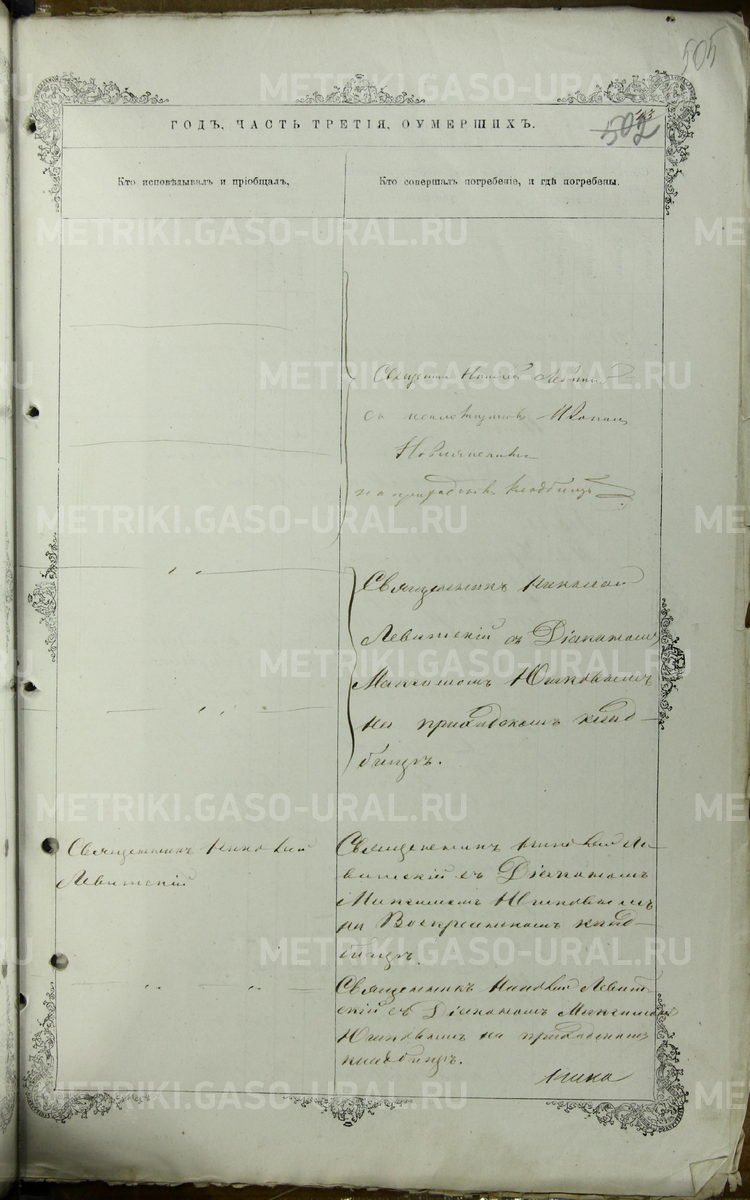 505
ГОДЪ, ЧАСТЬ ТРЕТІЯ, О УМЕРШИХЪ.
502
Кто исповѣдывалъ и пріобщалъ,
Кто совершалъ погребеніе, и гдѣ погребены.
съ
на приходскомъ кладбищѣ
Священникъ Николай
Левитскій съ Діакономъ
Максимомъ Юшковымъ
на приходскомъ клад-
бищѣ.
Священникъ Николай
Левитскій
Священникъ Николай Ле-
витскій съ Діакономъ
Максимомъ Юшковымъ
на Воскресенскомъ клад-
бищѣ.
Священникъ Николай Левит-
скій съ Діакономъ Максимомъ
Юшковымъ на приходскомъ
кладбищѣ.
METRIKI.GASO-URAL.RU